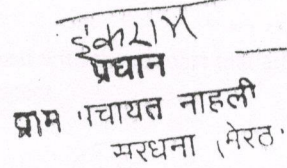 इकराम
प्रधान
ग्राम पंचायत नाहली
सरधना (मेरठ)